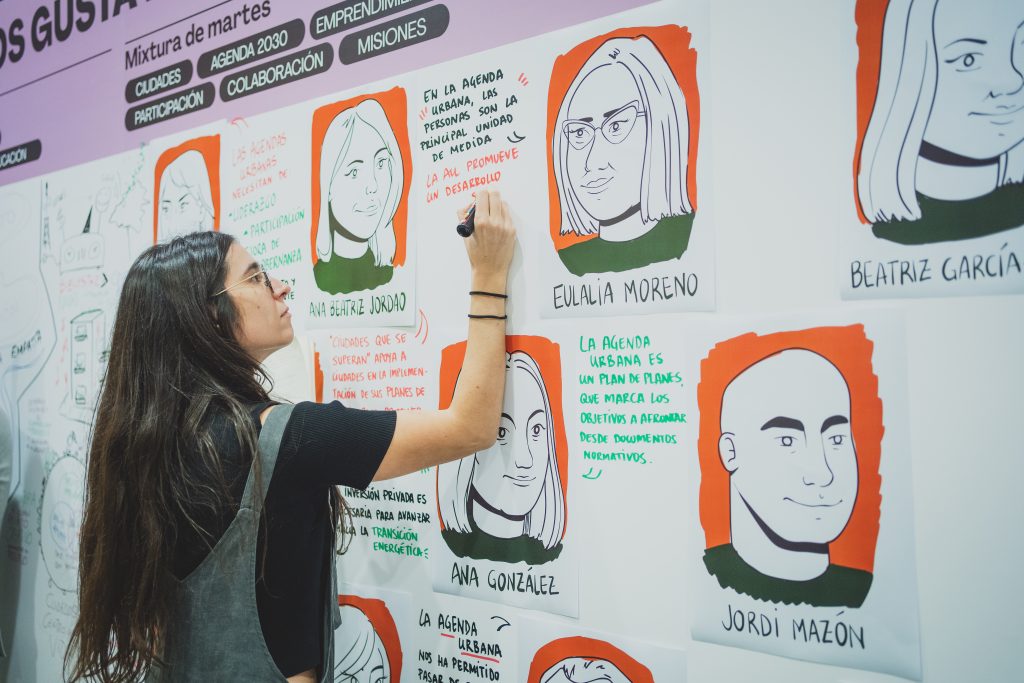 OS GUSTA
Mixtura de martes
CIUDADES
AGENDA 2030
EMPRENDIMIE
PARTICIPACIÓN
COLABORACIÓN
MISIONES
UCACIÓN
LAS AGENDAS
URBANAS
NECESITAN DE
LIDERAZGO
PARTICIPACIÓN
ORA DE
OBERNANZA
ANA BEATRIZ JORDAO
EN LA AGENDA
URBANA, LAS
PERSONAS SON LA
PRINCIPAL UNIDAD
DE MEDIDA
LA AUE PROMUEVE
UN DESARROLLO
EULALIA MORENO
BEATRIZ GARCÍA
EMPATÍA
"CIUDADES QUE SE
SUPERAN" APOYA A
CIUDADES EN LA IMPLEMEN-
TACIÓN DE SUS PLANES DE
INVERSIÓN PRIVADA ES
ESARIA PARA AVANZAR
LA TRANSICIÓN
ENERGÉTICA
ANA GONZÁLEZ
LA AGENDA
URBANA ES
UN PLAN DE PLANES,
QUE MARCA LOS
OBJETIVOS A AFRONTAR
DESDE DOCUMENTOS
NORMATIVOS.
JORDI MAZÓN
LA AGENDA
URBANA
NOS HA PERMITIDO
PASAR DE